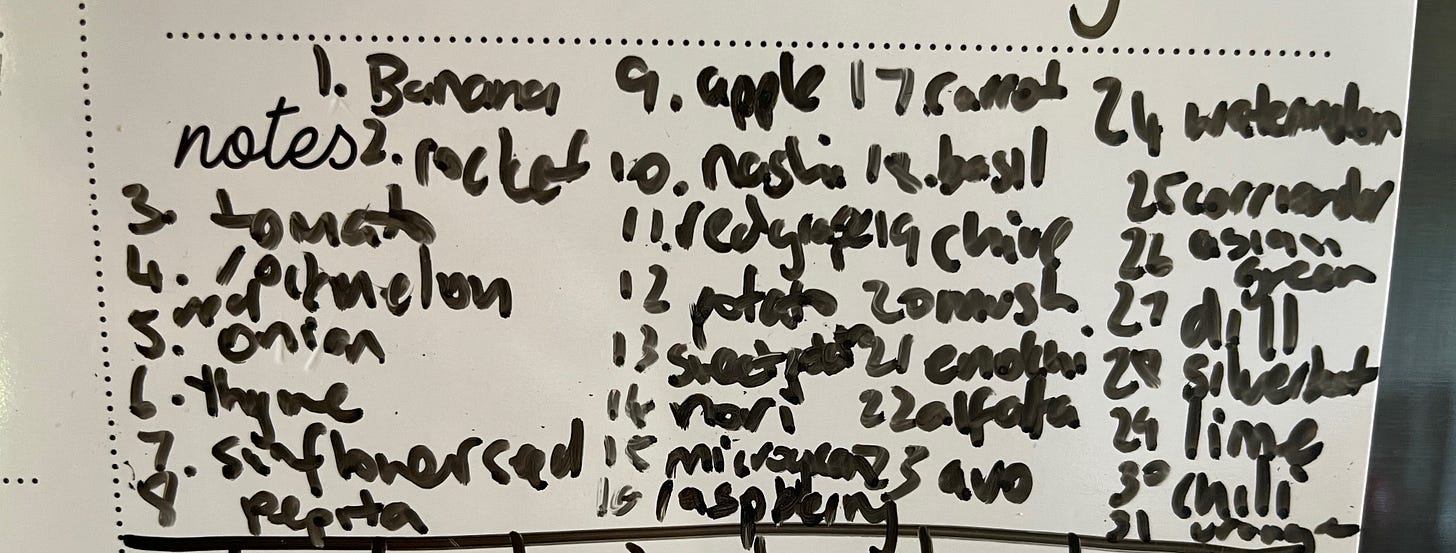 notes
1. Banana
2. rocket
3. tomato
4. rockmelon
5. red onion
6. thyme
7. sunflowerseed
8 pepita
9. apple
10. nashi
11. redgrape
12 potato
13 sweet potato
14 nori
15 microgreen
16 raspberry
17 carrot
18. basil
19 chive
20 mush.
21 enokhi
22 alfalfa
23 avo
24 watermelon
25 corriander
26 asian green
27 dill
28 silverbeet
29 lime
30 chili
31 orange